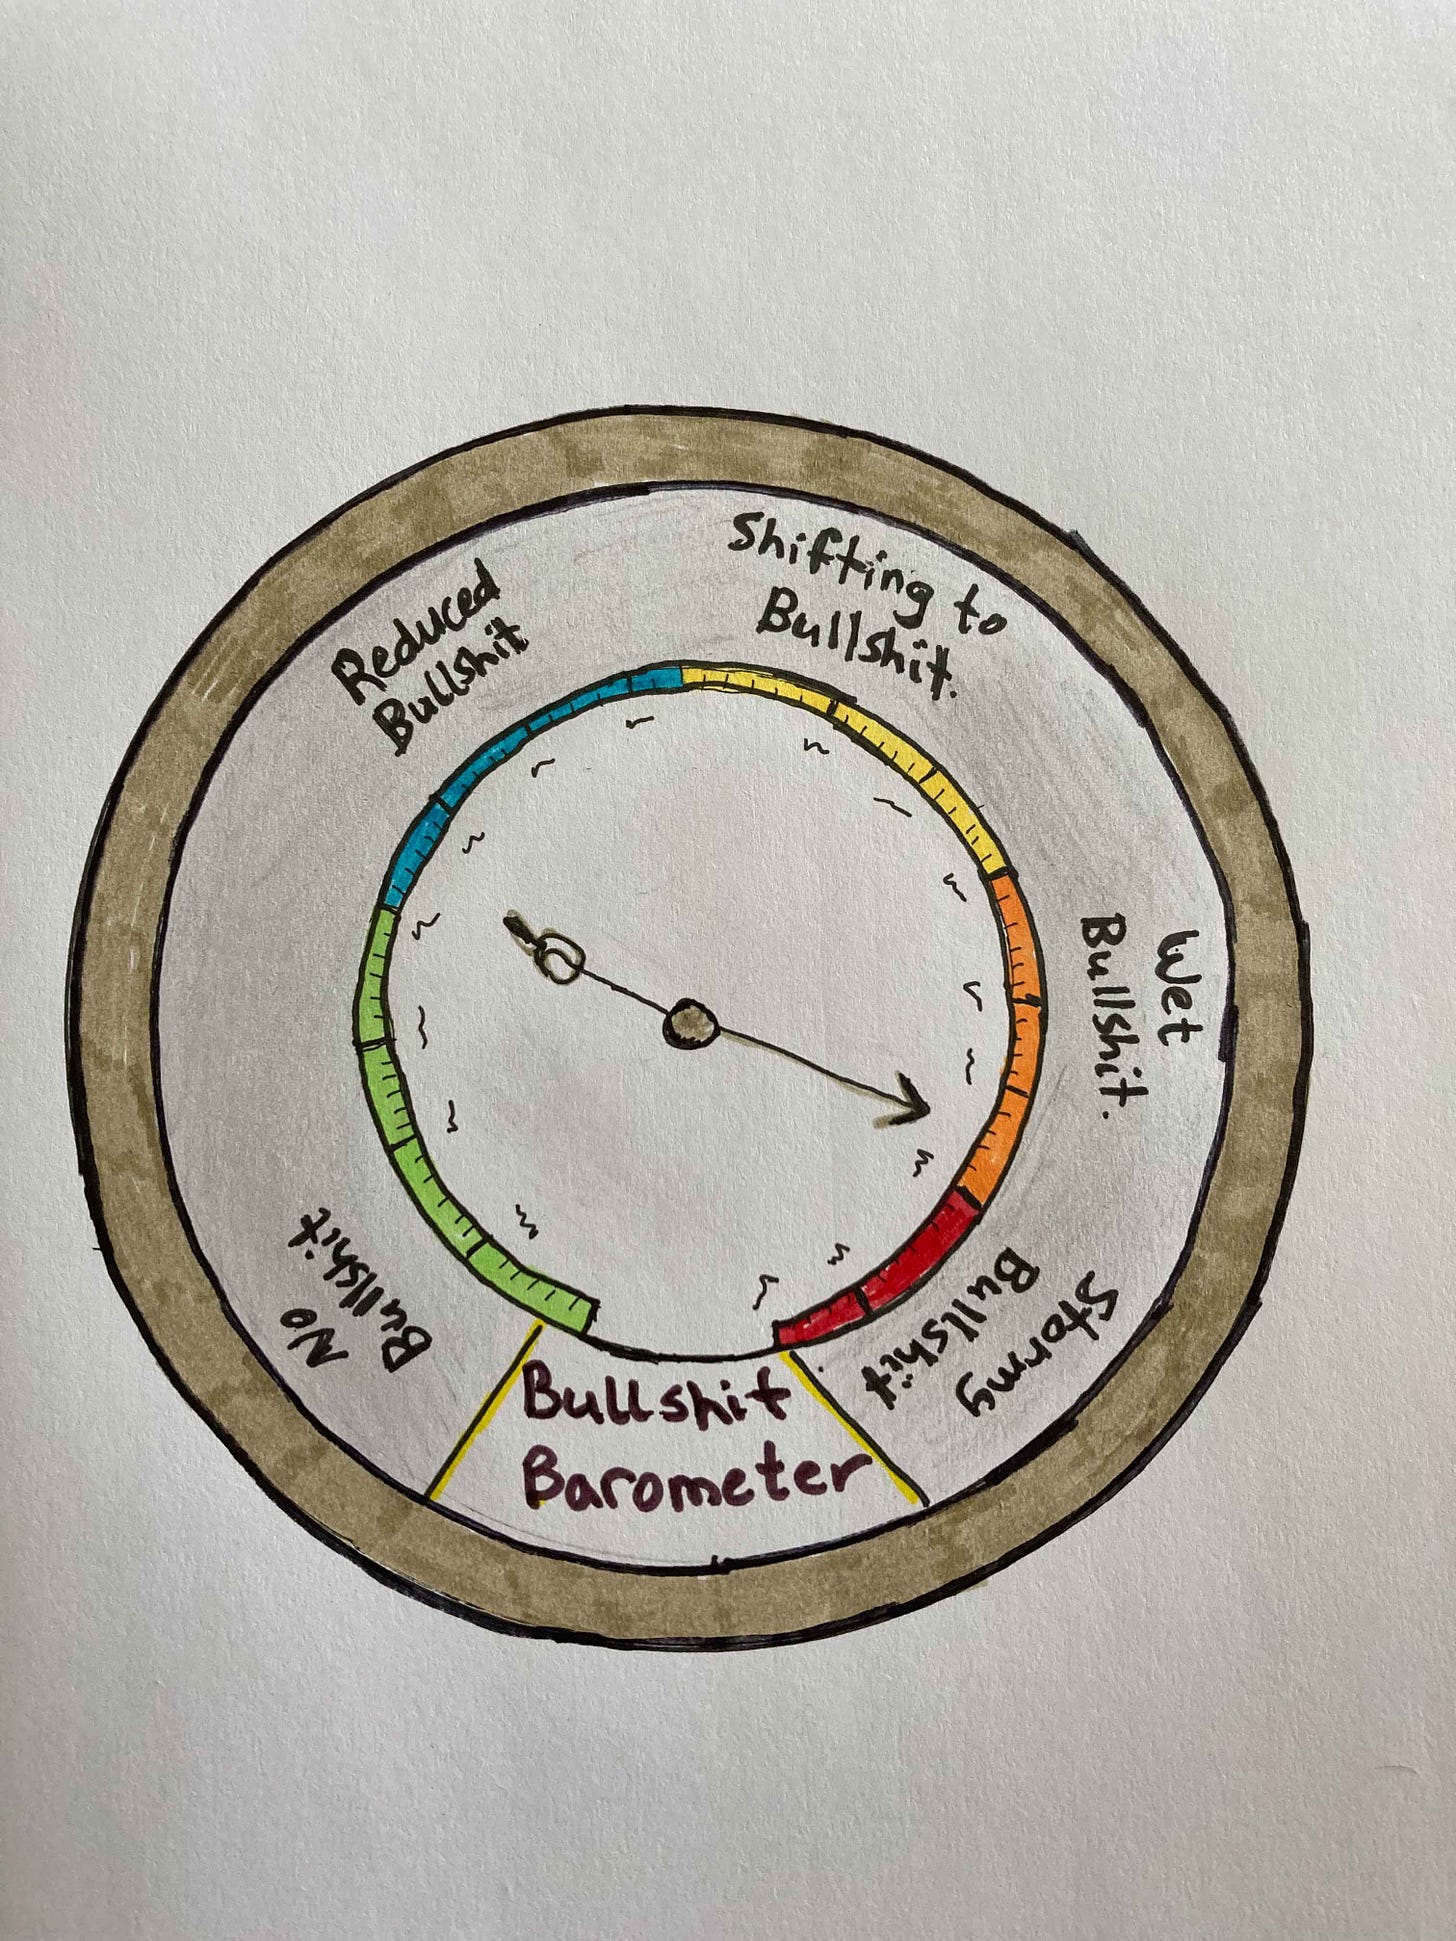 Reduced
Bullshit
Shifting to
Bullshit.
Wet
Bullshit.
Stormy
Bullshit
No
Bullshit
Bullshit
Barometer